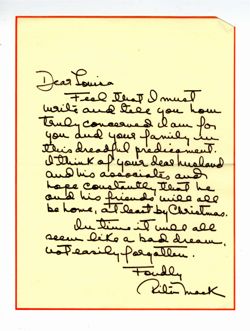 Dear Louisa
Feel that I must
write and tell you how
truly concerned I am for
you and your family in
this dreadful predicament.
I think of your dear husband
and his associates and
hope constantly that he
and his friends will all
be home, at least by Christmas.
In time it will all
seem like a bad dream,
not easily forgotten.
Fondly
Mack